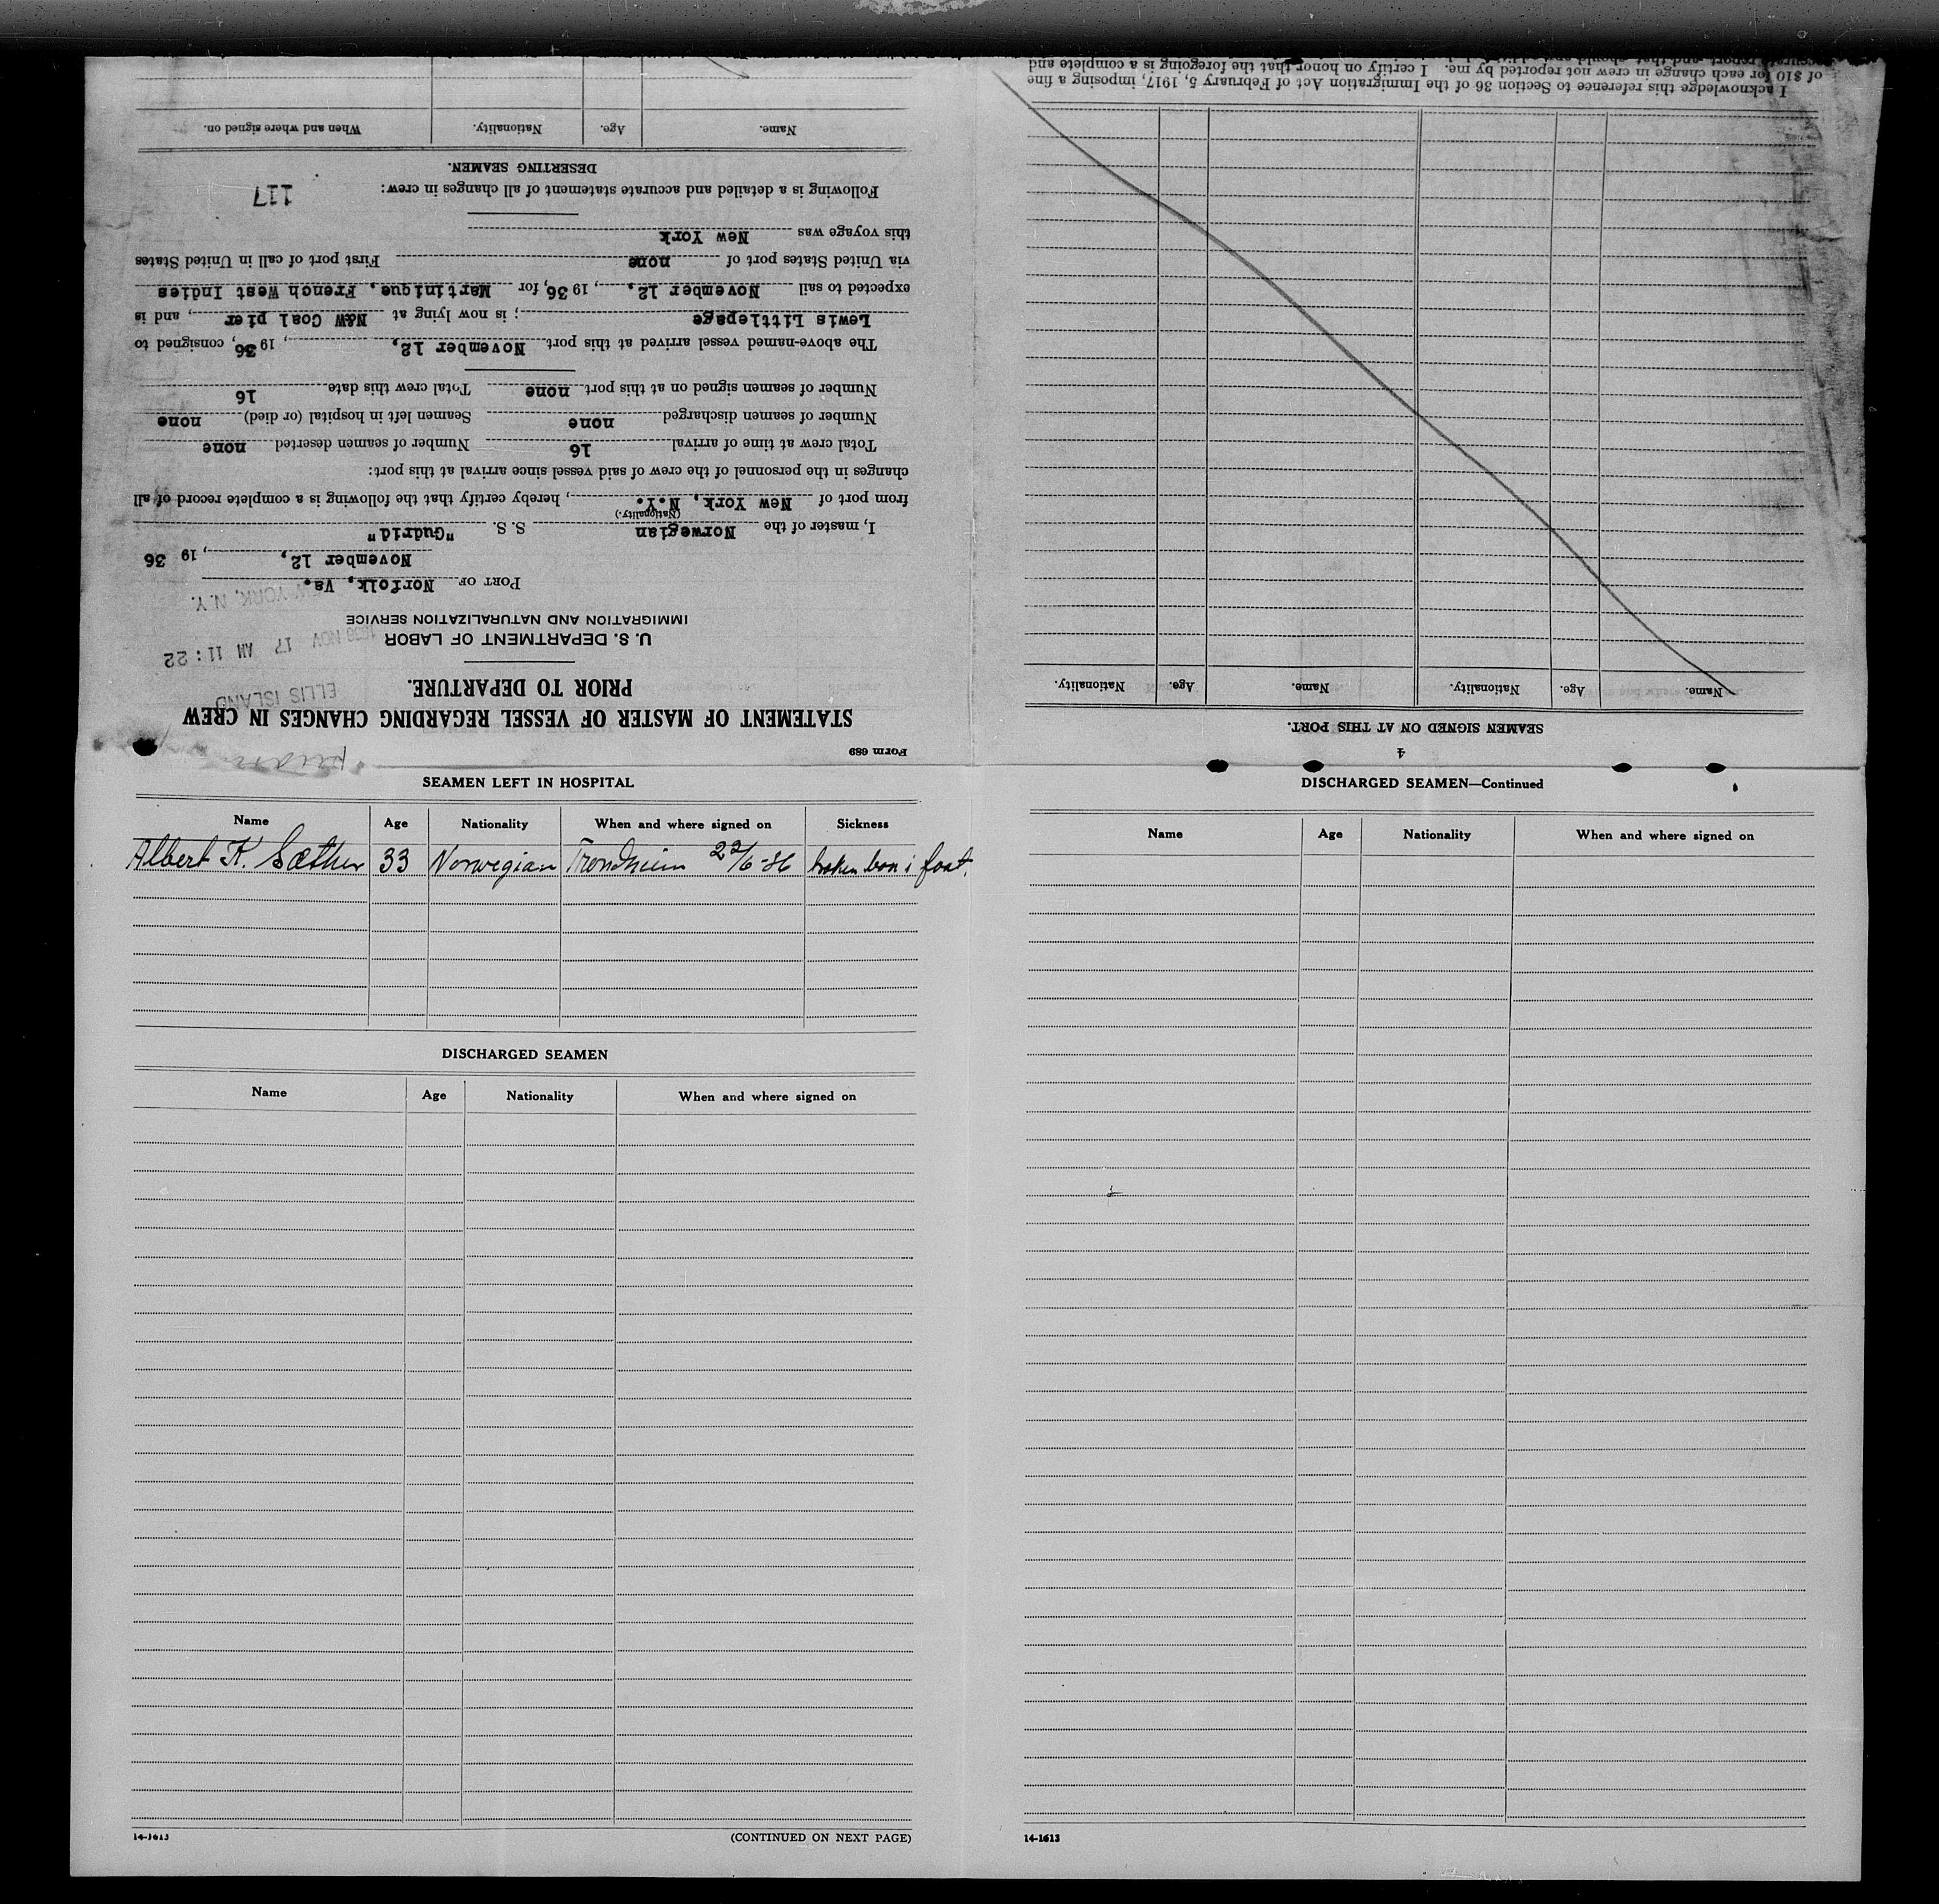 Form 689
STATEMENT OF MASTER OF VESSEL REGARDING CHANGES IN CREW
PRIOR TO DEPARTURE.
ELLIS ISLAND
1936 NOV 17 AM 11:22
NEW YORK, N.Y.
U. S. DEPARTMENT OF LABOR
IMMIGRATION AND NATURALIZATION SERVICE
PORT OF Norfolk, Va.
November 12, , 19 36
I, master of the Norwegian S. S. "Gudrid"
(Nationality.)
from port of New York, N.Y. , hereby certify that the following is a complete record of all
changes in the personnel of the crew of said vessel since arrival at this port:
Total crew at time of arrival 16 Number of seamen deserted none
Number of seamen discharged none Seamen left in hospital (or died) none
Number of seamen signed on at this port none Total crew this date 16
The above-named vessel arrived at this port November 12, , 19 36, consigned to
Lewis Littlepage ; is now lying at N&W Coal pier , and is
expected to sail November 12, , 19 36, for Martinique, French West Indies
via United States port of none First port of call in United States
this voyage was New York
Following is a detailed and accurate statement of all changes in crew: 117
DESERTING SEAMEN.
Name. Age. Nationality. When and where signed on.
4
SEAMEN SIGNED ON AT THIS PORT.
Name. Age. Nationality. Name. Age. Nationality.
I acknowledge this reference to Section 36 of the Immigration Act of February 5, 1917, imposing a fine
of $10 for each change in crew not reported by me. I certify on honor that the foregoing is a complete and
SEAMEN LEFT IN HOSPITAL
Name Age Nationality When and where signed on Sickness
Albert K. Sæther 33 Norwegian Trondheim 22/6-36 broken bon i foot.
DISCHARGED SEAMEN
Name Age Nationality When and where signed on
14-1613
(CONTINUED ON NEXT PAGE)
DISCHARGED SEAMEN—Continued
Name Age Nationality When and where signed on
14-1613